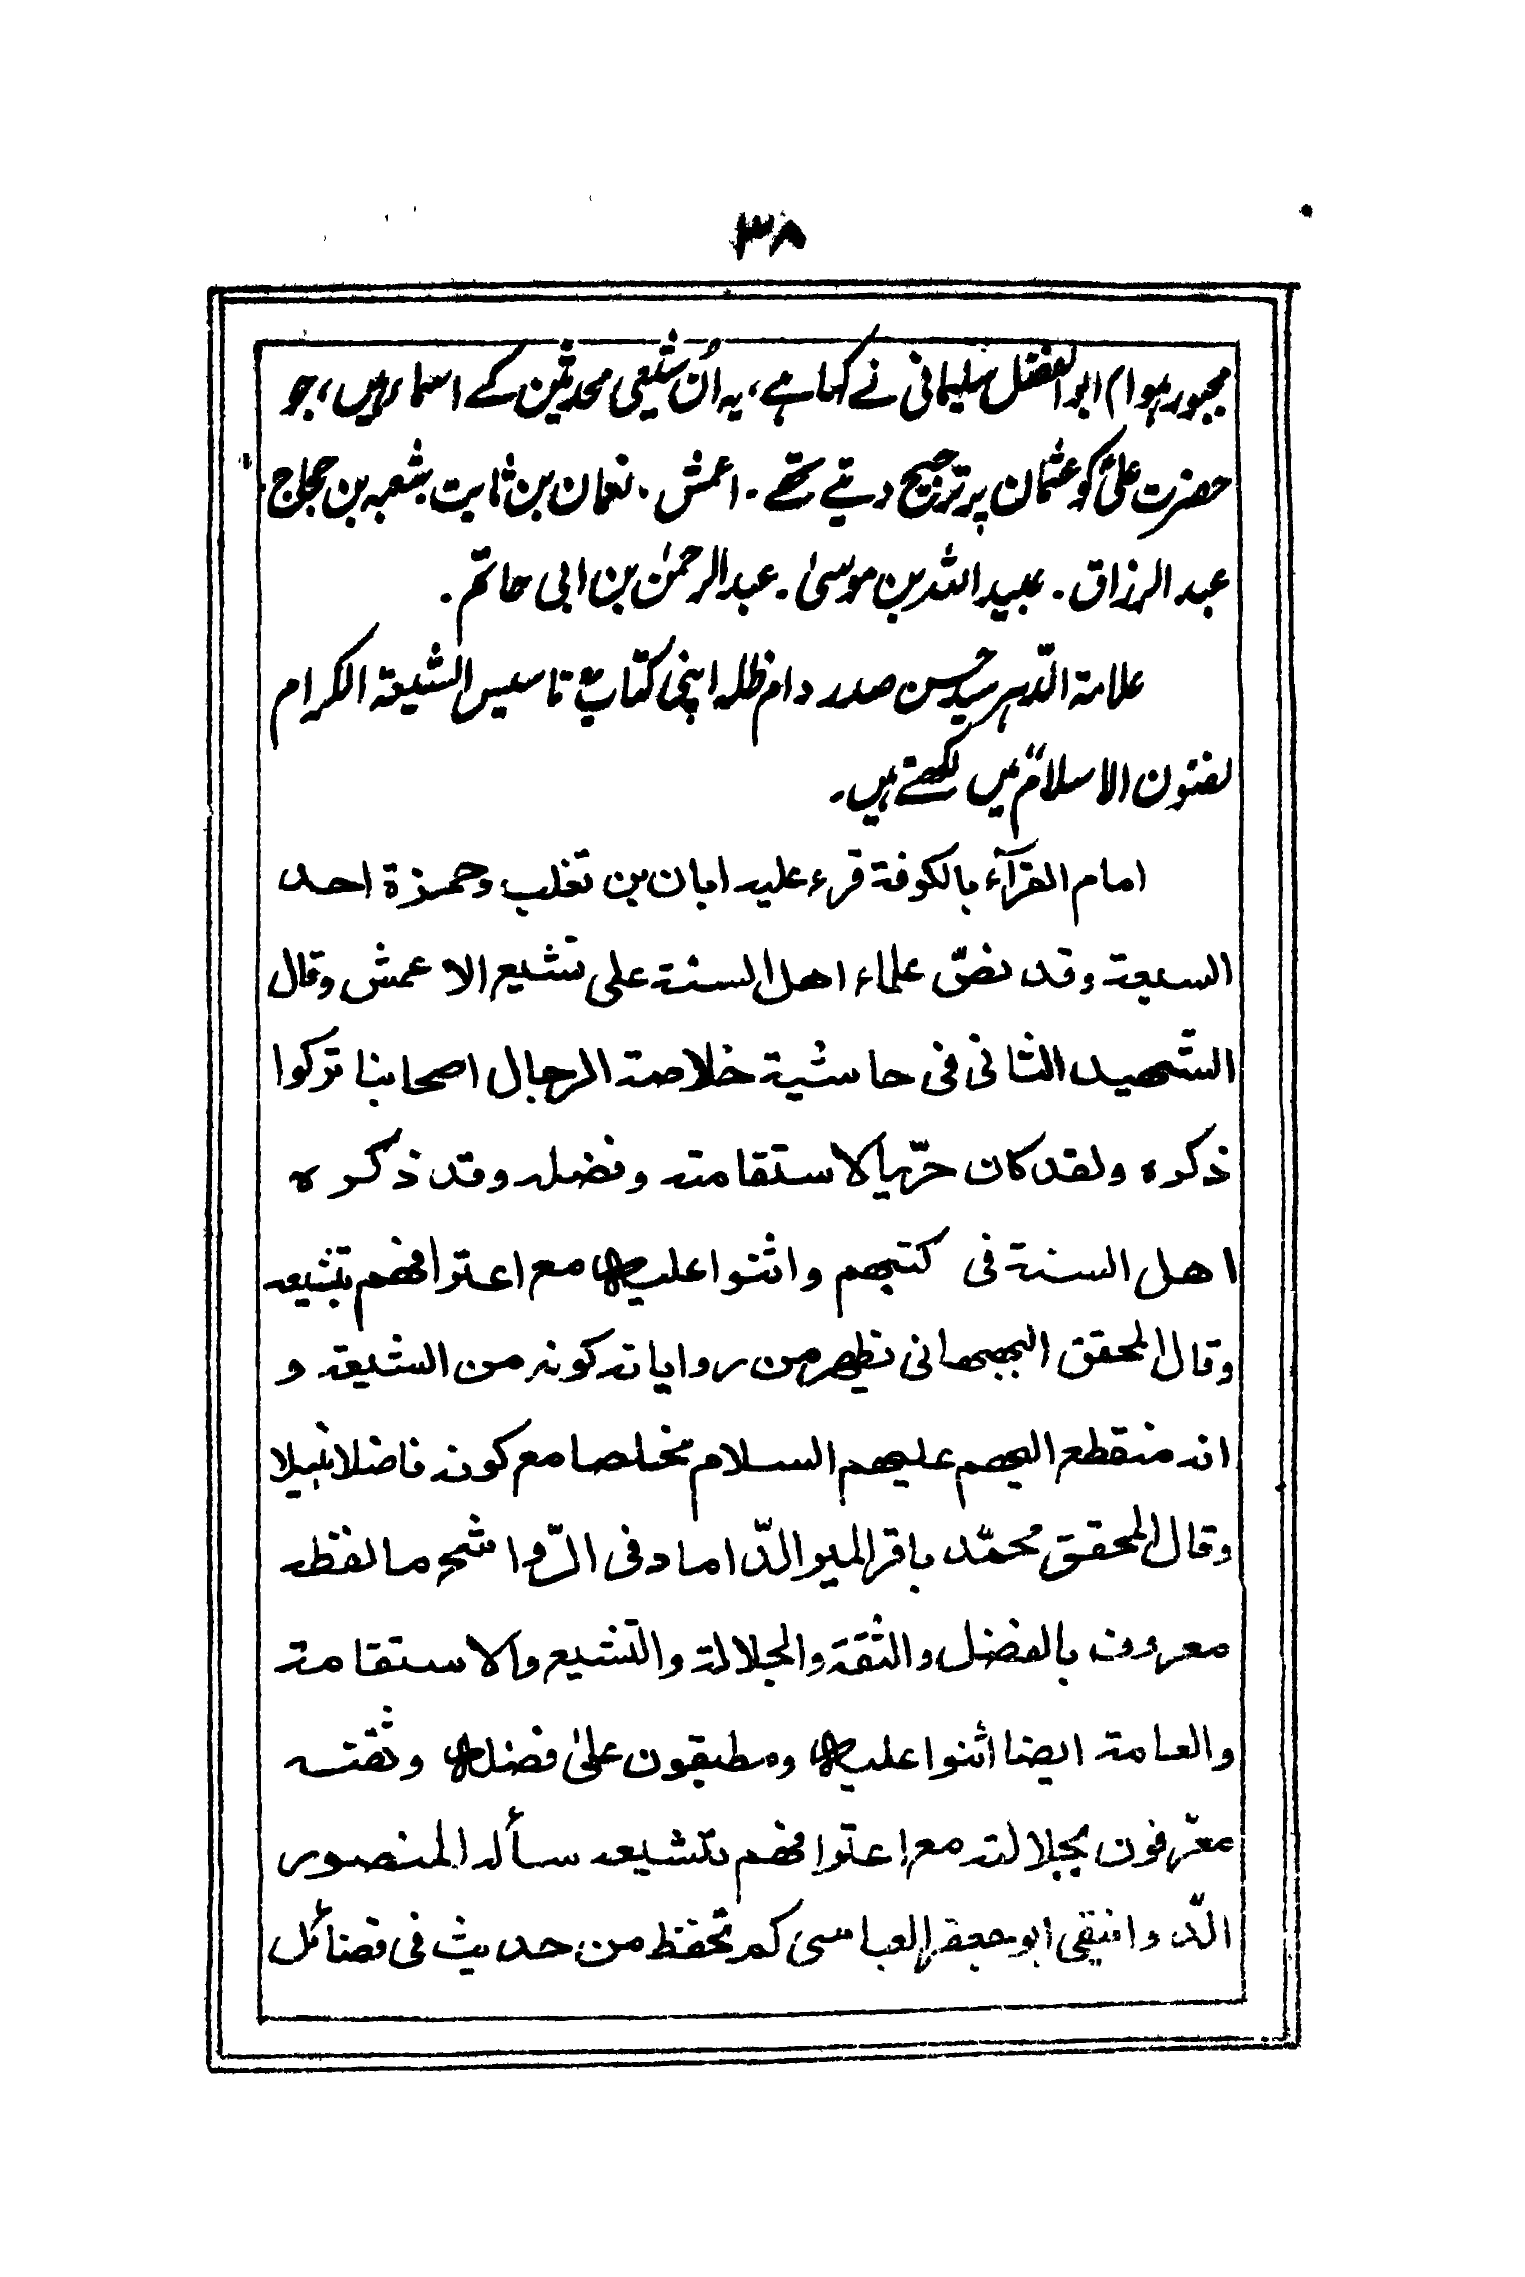 ۳۸
مجبور ہوا م ابو الفضل سلیمانی نے کہا ہے، یہ اُن شیعی محدثین کے اسماء ہیں، جو
حضرت علیؑ کو عثمان پر ترجیح دیتے تھے۔ اعمش۔ نعمان بن ثابت شعبہ بن حجاج۔
عبد الرزاق۔ عبید اللہ بن موسیٰ۔ عبد الرحمٰن بن ابی حاتم۔
علامۃ الدّہر سید حسن صدر دام ظلہ اپنی کتاب تاسیس الشیعۃ الکرام
لفنون الاسلام" میں لکھتے ہیں۔
امام القرآء بالکوفة قرء علیہ ابان بن تغلب وحمزة احد
السبعة وقد نصّ علماء اھل السنة علی تشیع الاعمش وقال
الشّھید الثانی فی حاشیة خلاصة الرجال اصحابنا ترکوا
ذکرہ ولقد کان حرّیا لاستقامتہ وفضلہ وقد ذکرہ
اھل السنة فی کتبھم واثنوا علیہ مع اعترافھم بتشیعہ
وقال المحقق البھبھانی یظھر من روایاتہ کونہ من الشیعة و
انہ منقطع الیھم علیھم السلام مخلصا مع کونہ فاضلا نبیلا
وقال المحقق محمّد باقر المیر الدّاماد فی الرّواشح ما لفظہ
معروف بالفضل والثقة والجلالة والتشیع والاستقامة
والعامة ایضا اثنوا علیہ ومطبقون علیٰ فضلہ وثقتہ
معرفون بجلالتہ مع اعترافھم بتشیعہ سألہ المنصور
الدّوانیقی ابو جعفر العباسی کم تحفظ من حدیث فی فضائل